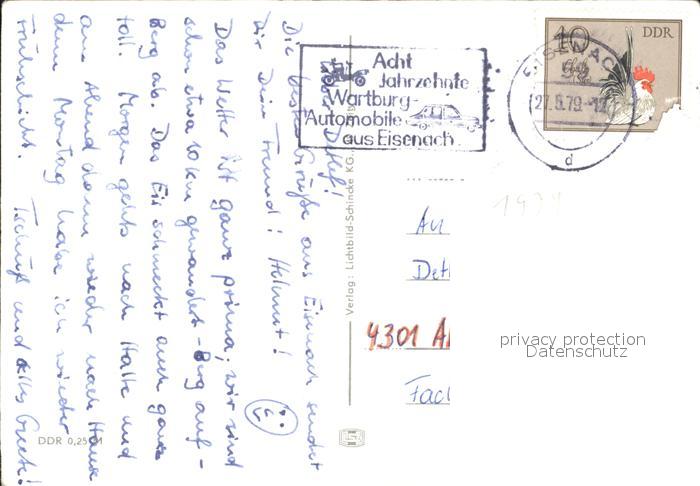 Detlef!
Die besten Grüße aus Eisenach sendet
Dir Dein Freund! Helmut!
Das Wetter ist ganz prima, wir sind
schon etwa 10 km gewandert - Berg auf -
Berg ab. Das Eis schmeckt auch ganz
toll. Morgen gehts nach Halle und
am Abend dann wieder nach Hause
denn Montag habe ich wieder
Frühschicht. Tschüß und alles Gute!
DDR 0,25 M
Verlag: Lichtbild-Schincke KG.
Acht
Jahrzehnte
Wartburg-
Automobile
aus Eisenach
EISENAC
27.5.79-12
d
10
DDR
1979
An
Detl
4301 Al
Facl
privacy protection
Datenschutz